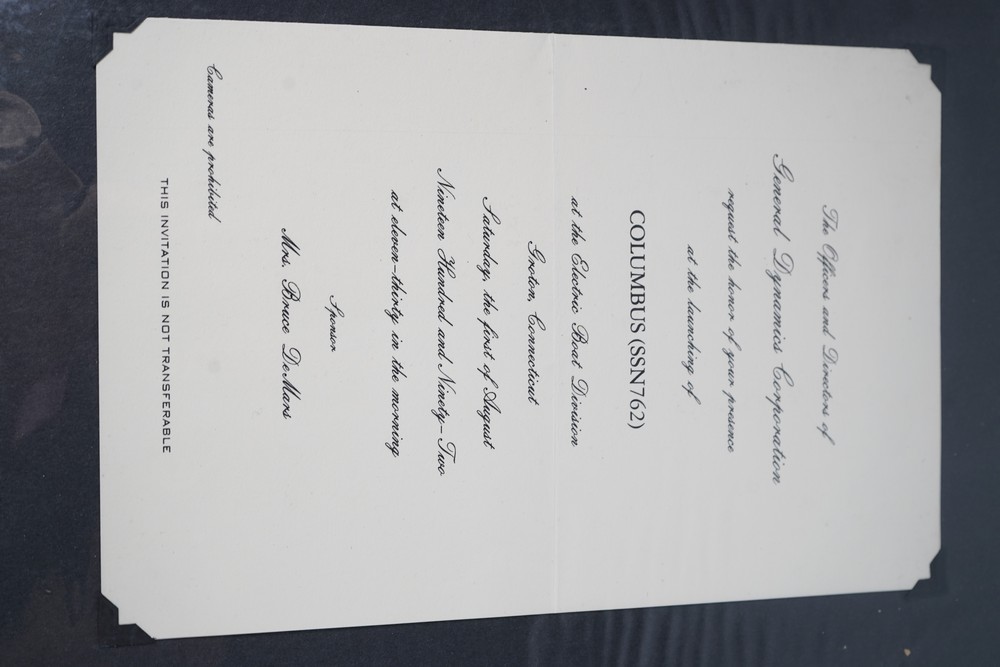 The Officers and Directors of
General Dynamics Corporation
request the honor of your presence
at the launching of
COLUMBUS (SSN762)
at the Electric Boat Division
Groton, Connecticut
Saturday, the first of August
Nineteen Hundred and Ninety-Two
at eleven-thirty in the morning
Sponsor
Mrs. Bruce DeMars
Cameras are prohibited
THIS INVITATION IS NOT TRANSFERABLE